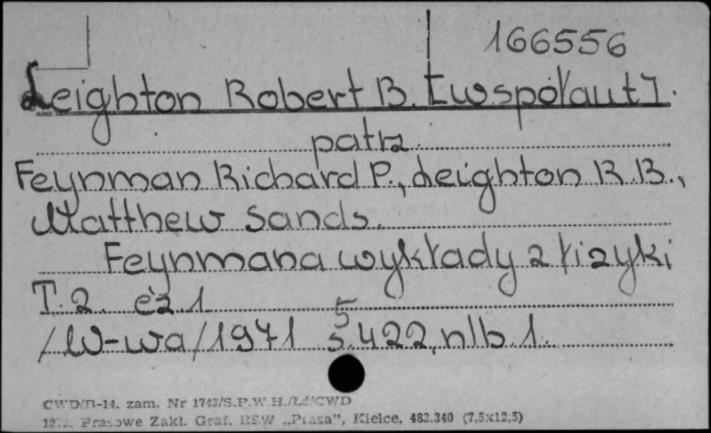 166556
Leighton Robert B. [współaut].
patrz
Feynman Richard P., Leighton R.B.,
Matthew Sands.
Feynmana wykłady z fizyki
T.2. cz 1
/W-wa/1971 s.422, nlb.1.
CWD/B-14. zam. Nr 1743/S.P.W.H./ CWD
Prasowe Zakł. Graf. RSW „Prasa”, Kielce, 483.340 (7,5x12,5)